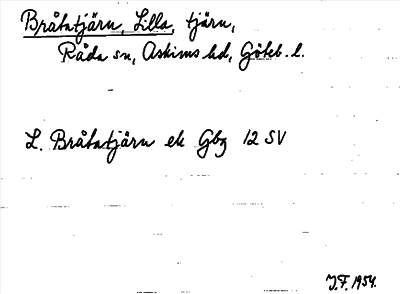 Bråtatjärn, Lilla, tjärn,
Råda sn, Askims hd, Göteb. l.
L. Bråtatjärn ek Gbg 12 SV
J.F. 1954.